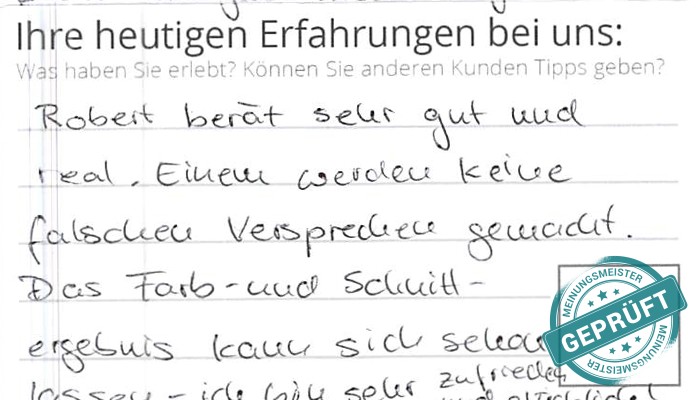 Ihre heutigen Erfahrungen bei uns:
Was haben Sie erlebt? Können Sie anderen Kunden Tipps geben?
Robert berät sehr gut und
real. Einem werden keine
falschen Versprechen gemacht.
Das Farb-und Schnitt-
ergebnis kann sich sehen
lassen - ich bin sehr zufrieden
und
MEINUNGSMEISTER
GEPRÜFT
MEINUNGSMEISTER